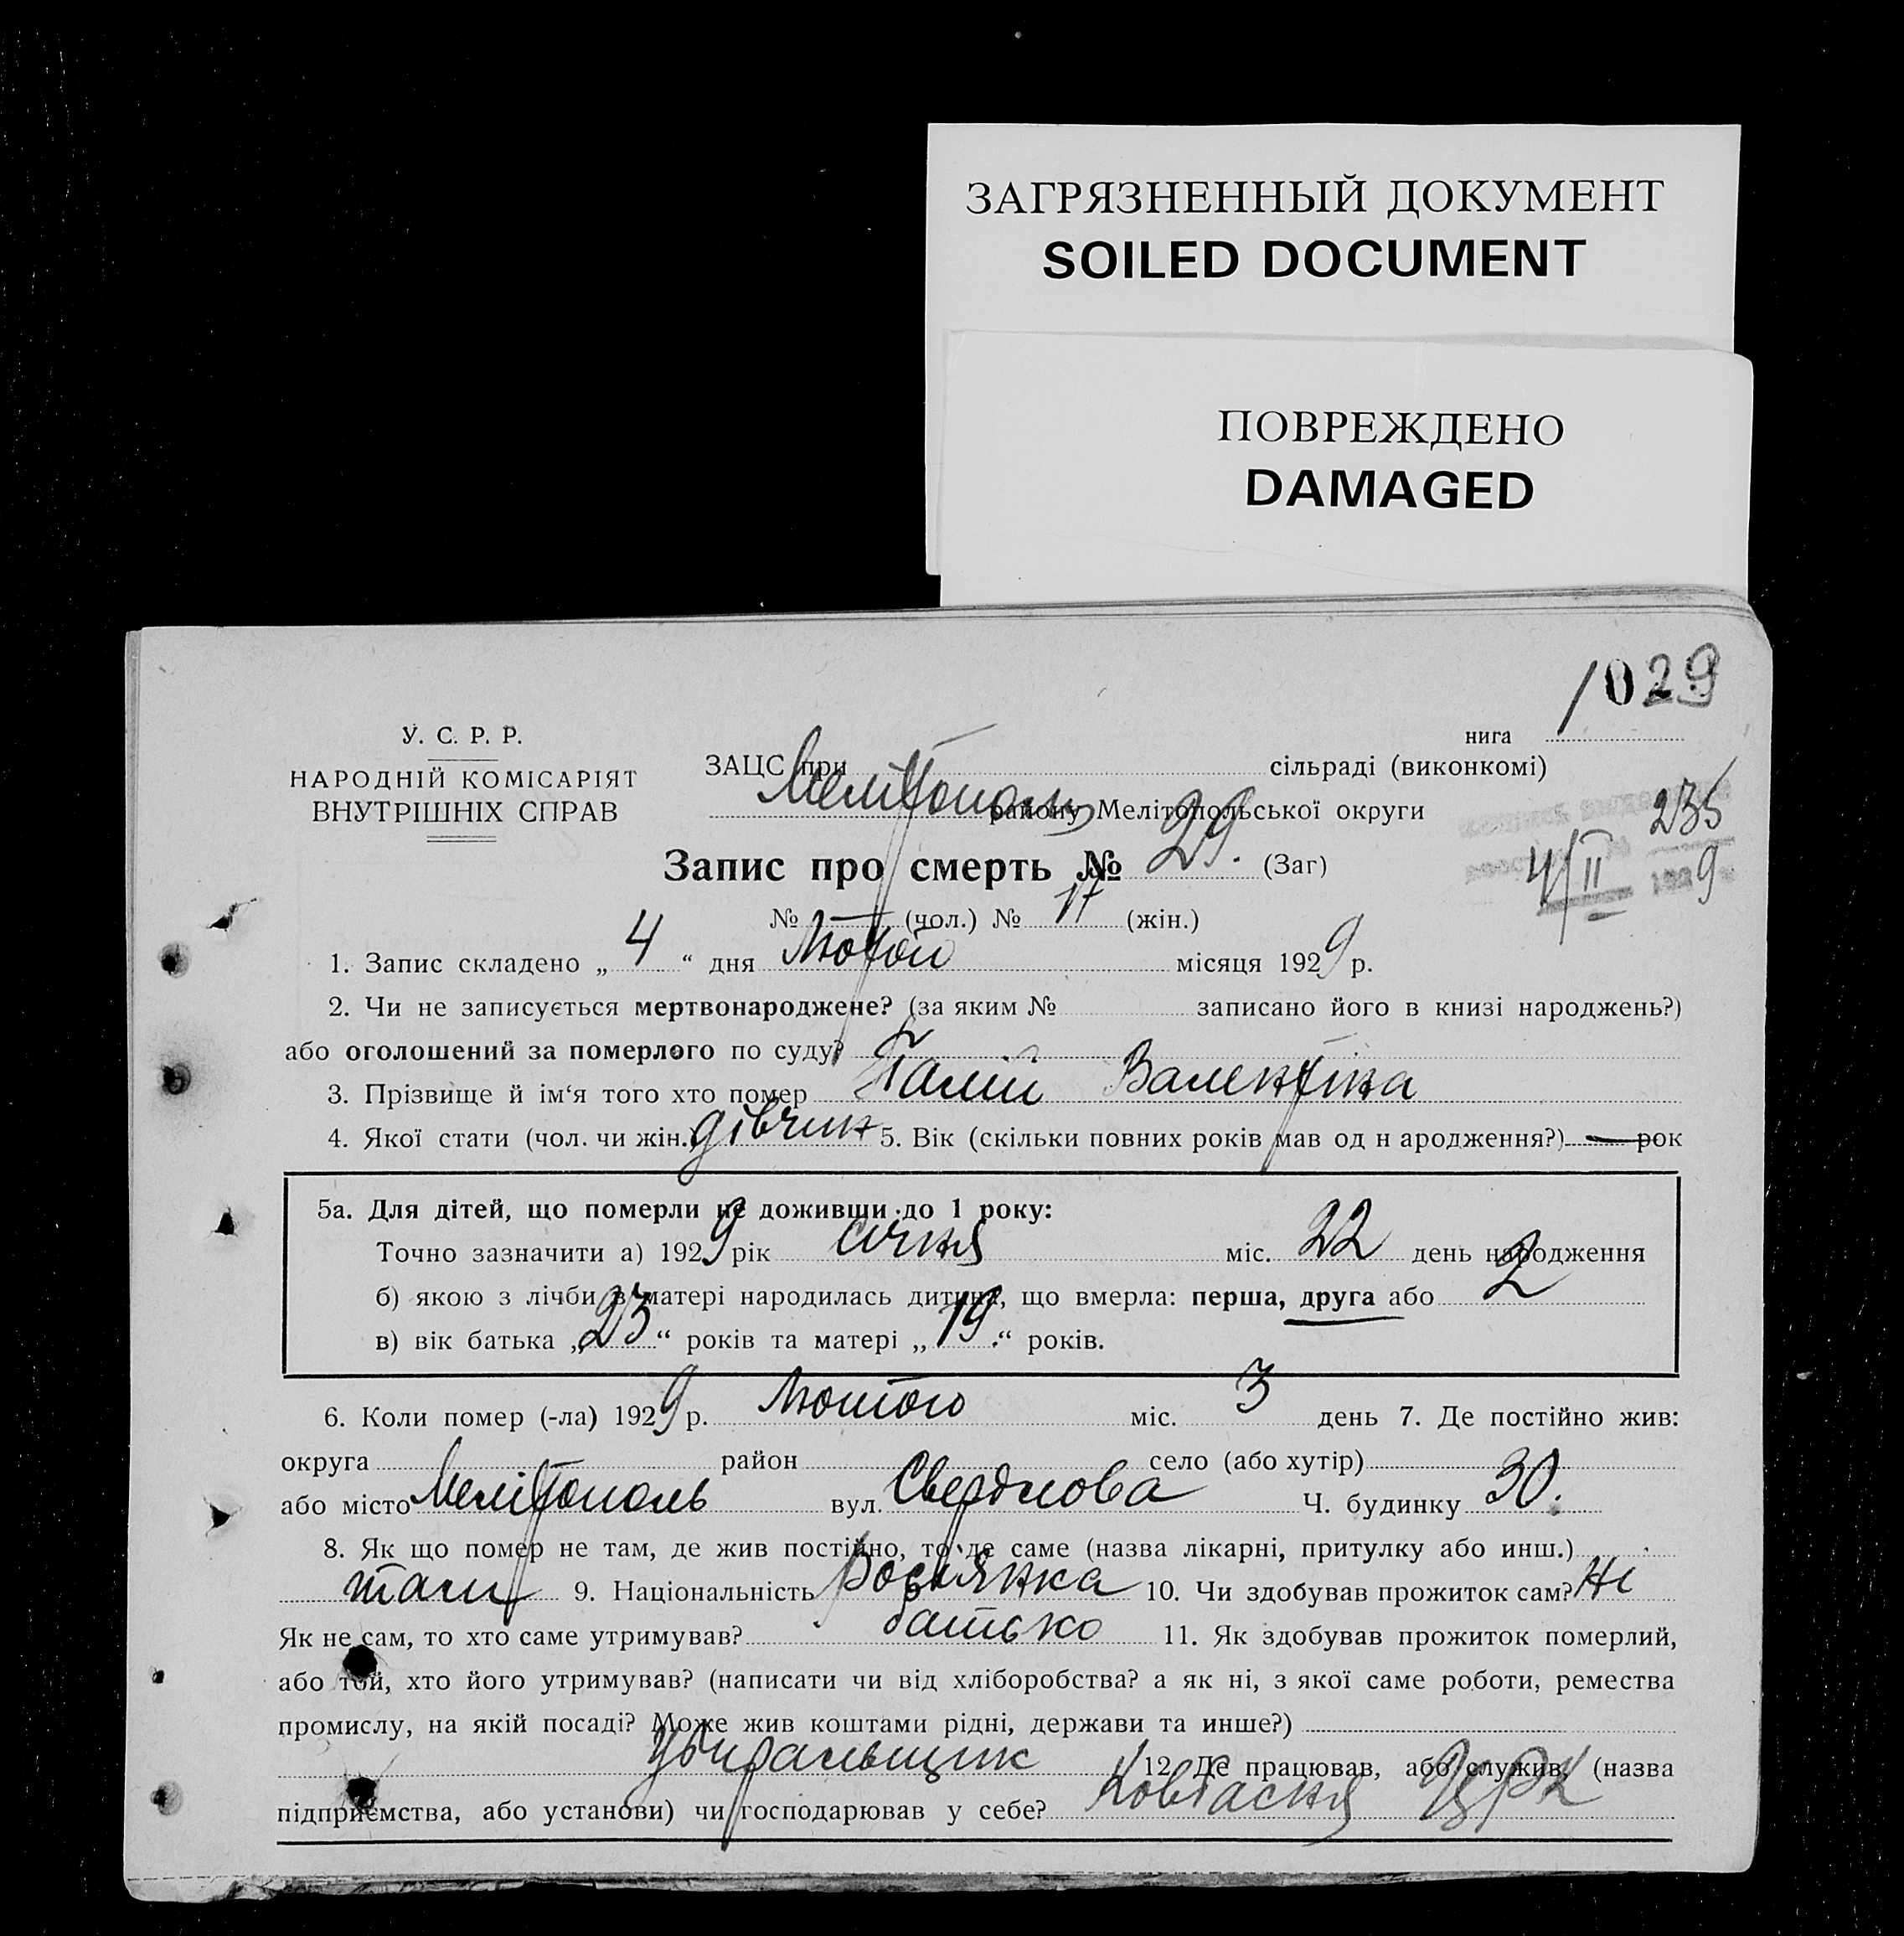 ЗАГРЯЗНЕННЫЙ ДОКУМЕНТ
SOILED DOCUMENT
ПОВРЕЖДЕНО
DAMAGED
1029
У. С. Р. Р.
НАРОДНІЙ КОМІСАРІЯТ
ВНУТРІШНІХ СПРАВ
нига
ЗАЦС при сільраді (виконкомі)
Мелітополь району Мелітопольської округи
235
4/II 1929
Запис про смерть № 29. (Заг)
№ — (чол.) № 17 (жін.)
1. Запис складено „ 4 “ дня місяця 1929 р.
2. Чи не записується мертвонароджене? (за яким № записано його в книзі народжень?)
або оголошений за померлого по суду?
3. Прізвище й ім‘я того хто помер Палій Валентіна
4. Якої стати (чол. чи жін.) дівчин 5. Вік (скільки повних років мав од н ародження?) — рок
5а. Для дітей, що померли не доживши до 1 року:
Точно зазначити а) 1929 рік січня міс. 22 день народження
б) якою з лічби в матері народилась дитина, що вмерла: перша, друга або 2
в) вік батька „23“ років та матері „19.“ років.
6. Коли помер (-ла) 1929 р. Лютого міс. 3 день 7. Де постійно жив:
округа район село (або хутір)
або місто Мелітополь вул. Свердлова Ч. будинку 30.
8. Як що помер не там, де жив постійно, то де саме (назва лікарні, притулку або инш.)
там 9. Національність Росіянка 10. Чи здобував прожиток сам? Ні
Як не сам, то хто саме утримував? батько 11. Як здобував прожиток померлий,
або той, хто його утримував? (написати чи від хліборобства? а як ні, з якої саме роботи, ремества
промислу, на якій посаді? Може жив коштами рідні, держави та инше?)
Убиральщик 12. Де працював, або служив, (назва
підприємства, або установи) чи господарював у себе? Ковбасня ЦРК